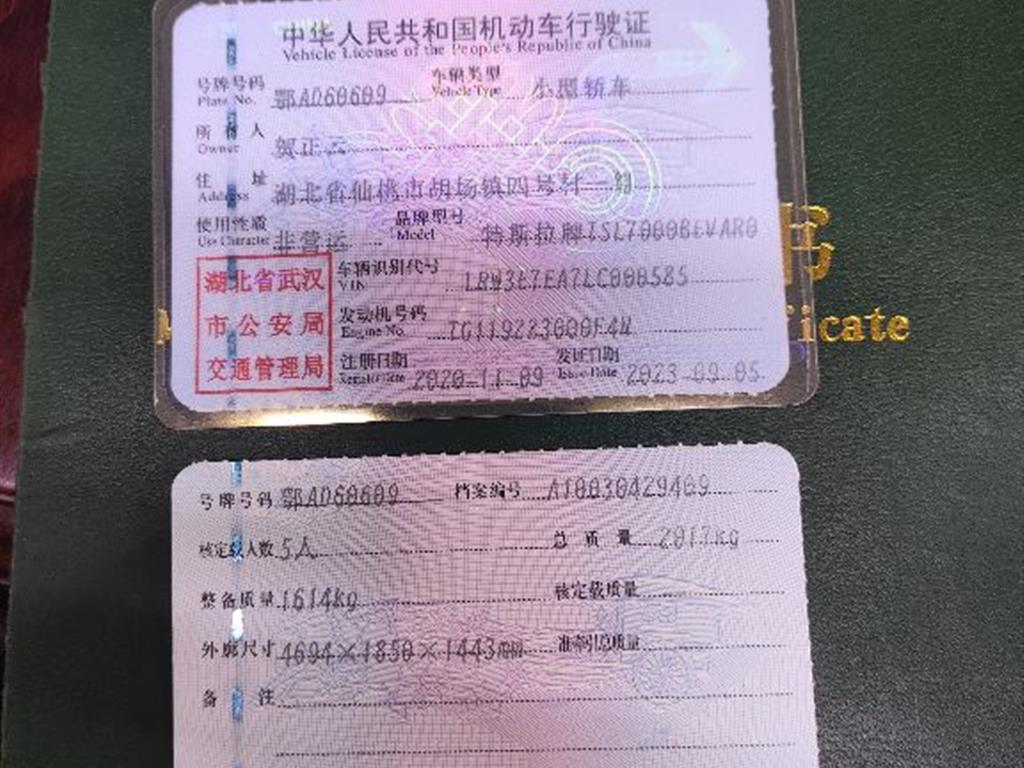 中华人民共和国机动车行驶证
Vehicle License of the People's Republic of China
号牌号码 鄂AD60609 车辆类型 小型轿车
Plate No. Vehicle Type
所有人 贺正云
Owner
住址 湖北省仙桃市胡场镇四号村一组
Address
使用性质 非营运 品牌型号 特斯拉牌TSL7000BEVAR0
Use Character Model
湖北省武汉
市公安局
交通管理局
车辆识别代号 LRW3E7EA7LC000585
VIN
发动机号码 TG119283000F4N
Engine No.
注册日期 2020-11-09 发证日期 2023-09-05
Register Date Issue Date
书
icate
号牌号码 鄂AD60609 档案编号 A10030429409
核定载人数 5人 总质量 2017kg
整备质量 1614kg 核定载质量
外廓尺寸 4694×1850×1443mm 准牵引总质量
备注